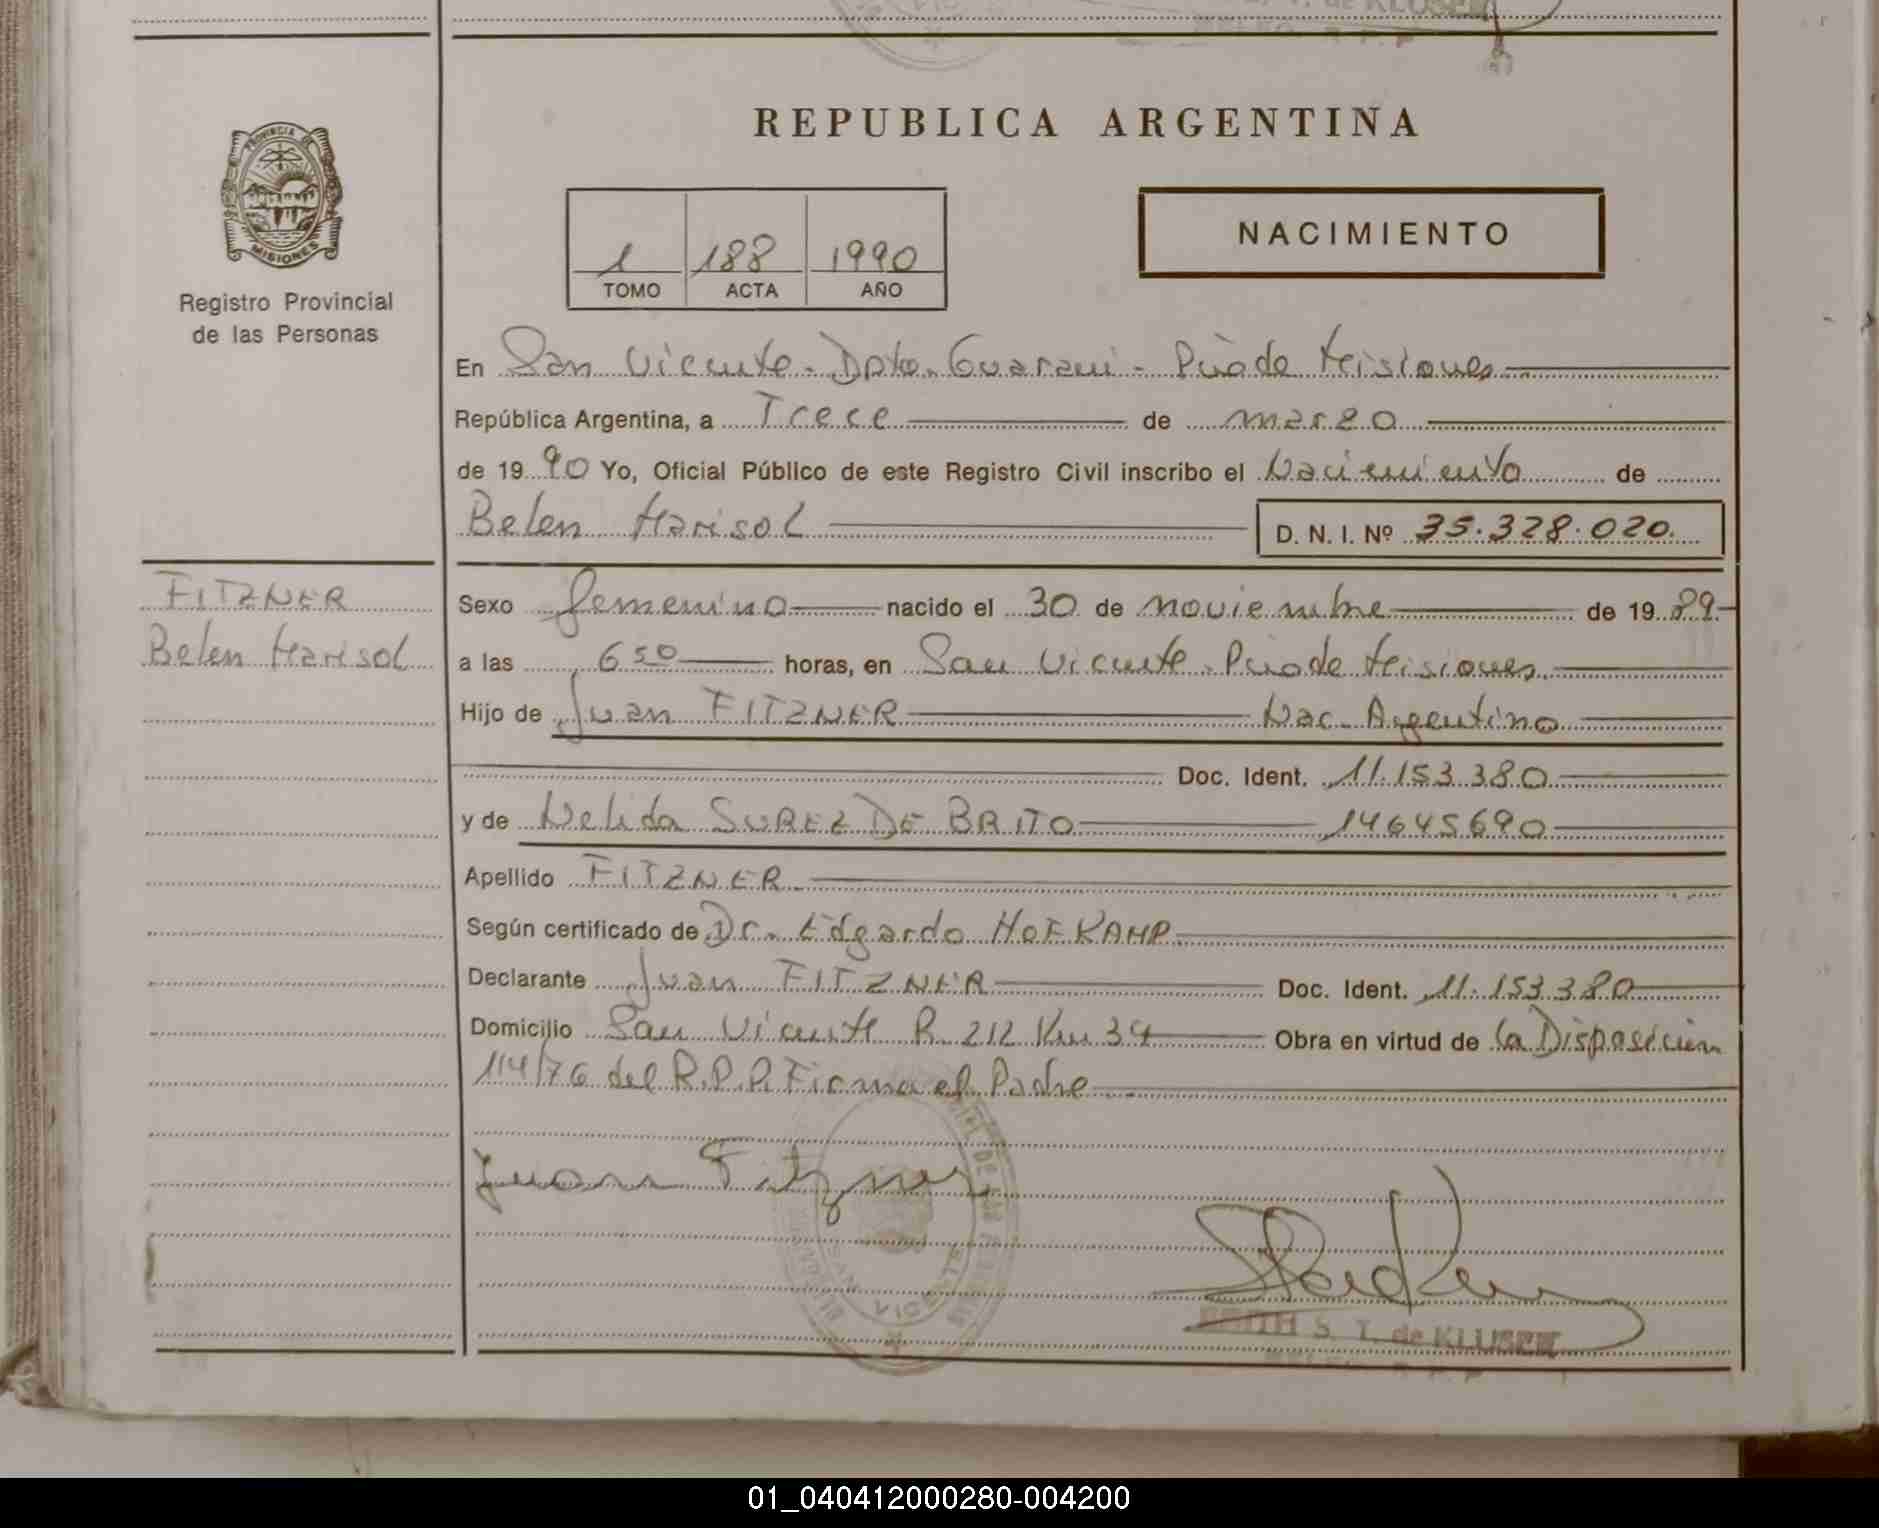 de KLUSER
REPUBLICA ARGENTINA
PROVINCIA DE
MISIONES
Registro Provincial
de las Personas
1 188 1990
TOMO ACTA AÑO
NACIMIENTO
En San Vicente - Dpto. Guarani - Pcia de Misiones
República Argentina, a Trece de marzo
de 1990 Yo, Oficial Público de este Registro Civil inscribo el Nacimiento de
Belen Marisol D. N. I. Nº 35.328.020.
FITZNER
Belen Marisol
Sexo femenino nacido el 30 de noviembre de 1989
a las 6 50 horas, en San Vicente - Pcia de Misiones
Hijo de Juan FITZNER Nac. Argentino
Doc. Ident. 11.153.380
y de Nelida SUREZ DE BRITO 14645690
Apellido FITZNER
Según certificado de Dr. Edgardo HOFKAMP
Declarante Juan FITZNER Doc. Ident. 11.153.380
Domicilio San Vicente R. 212 Km 34 Obra en virtud de la Disposicion
114/76 del R.P.P. Firma el Padre
Juan Fitzner
SAN VICENTE
EDITH S. T. de KLUSER
01_040412000280-004200